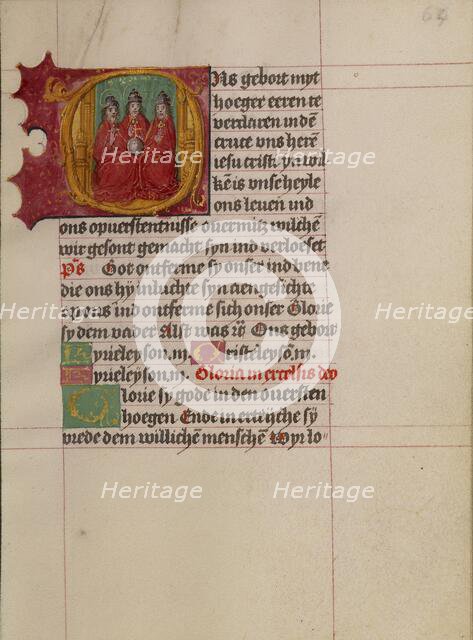 64
Ons gebort myt
hoeger eeren te
verclaren in dē
cruce vns herē
iesu cristi yn wil
kē is vnse heyle
ons leuen ind
ons opuerstentnisse ouermitz wilchē
wir gesont gemacht syn ind verloeset
Ps Got ontferme sy onser ind bene
die ons hy inluchte syn aengesichte
ouer ons ind ontferme sich onser Glorie
sy dem vader Alst was Ons gebort
Kyrieleyson. Cristeleysō.
Kyrieleyson. Gloria in excelsis deo
Glorie sy gode in den ouersten
hoegen Ende in ertrijche sy
vrede dem willichē menschē Wyr lo